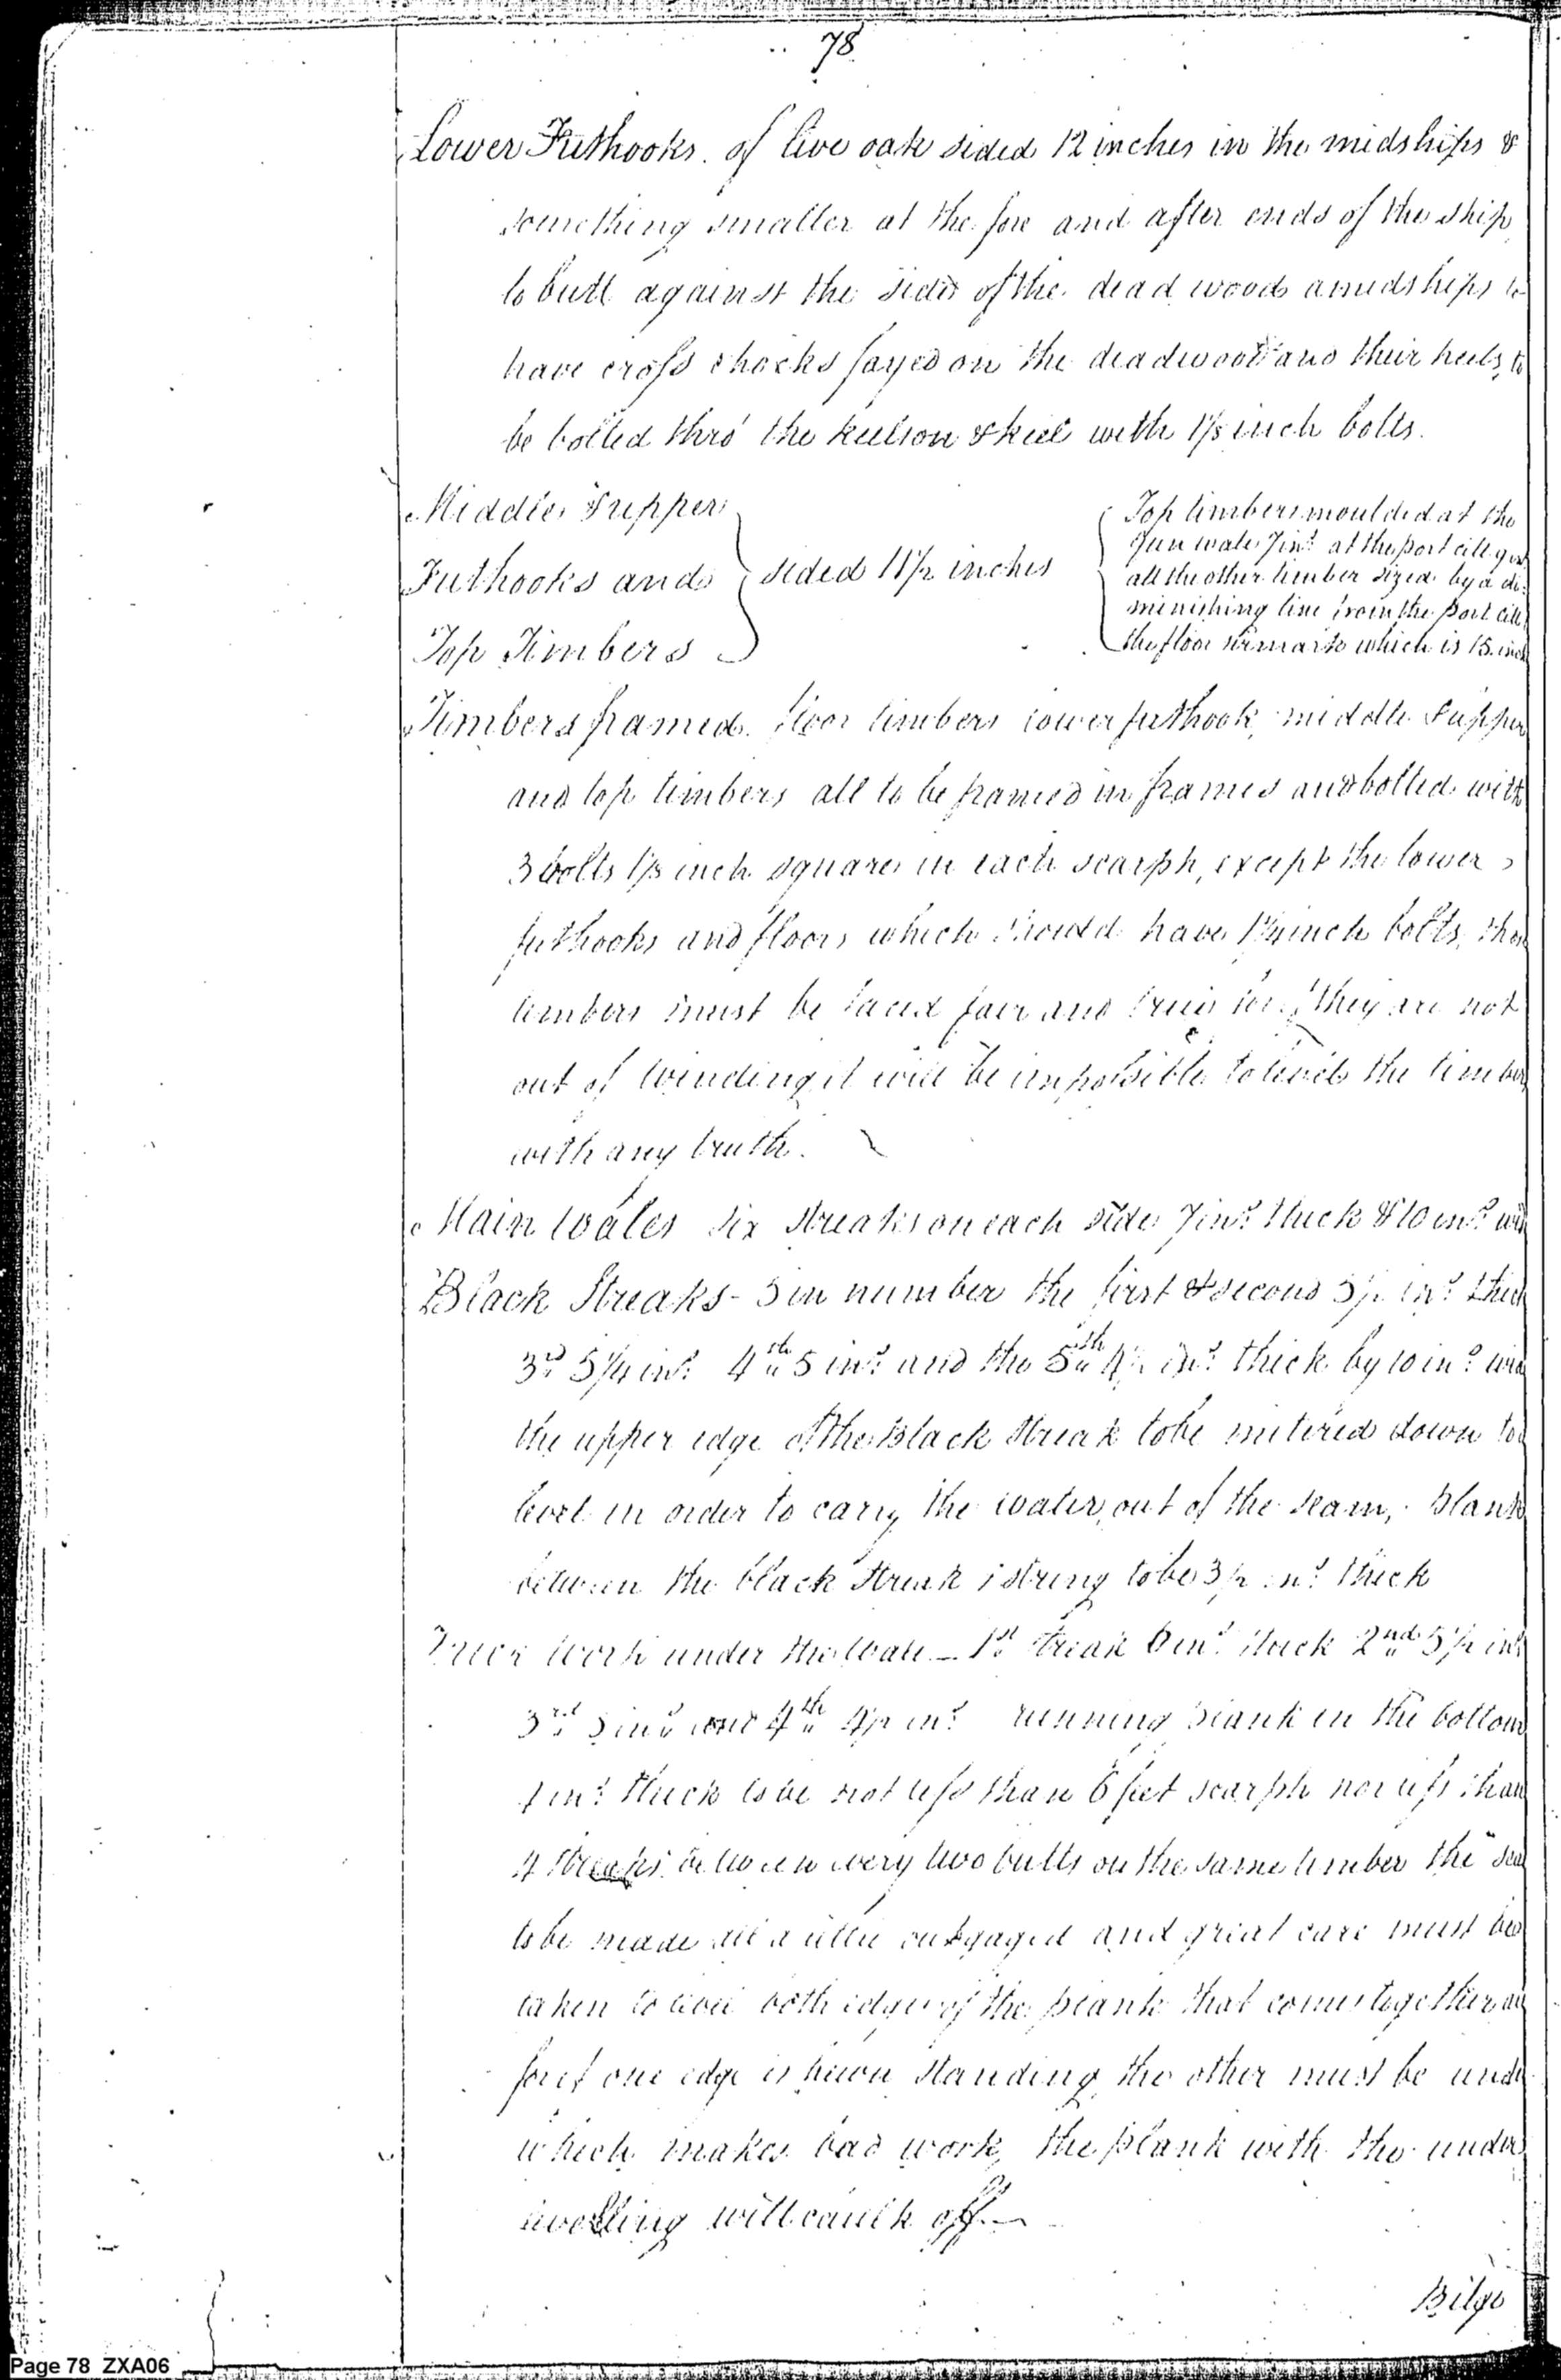 78
Lower Futhooks. of live oak sided 12 inches in the midships &
something smaller at the fore and after ends of the ship
to butt against the sides of the dead wood amidships to
have cross chocks fayed on the deadwood and their heels, to
be bolted thro' the keelson & keel with 1⅛ inch bolts.
Middle & upper
Futhooks and
Top Timbers
sided 11½ inches
Top timbers moulded at the
Gun wale 7 ins at the port cill
all the other timber sized by a di-
minishing line from the port cill
the floor sirmark which is 15 inch
Timbers framed. floor timbers lower futhook, middle & upper
and top timbers all to be framed in frames and bolted with
3 bolts inch square in each scarph, except the lower
futhooks and floors which should have 1¼ inch bolts, the
timbers must be faced fair and true for if they are not
out of winding it will be impossible to bevel the timber
with any truth.
Main Wales six streaks on each side 7 ins thick & 10 ins
Black Streaks - 5 in number the first & second 5½ ins thick
3rd 5¼ ins 4th 5 ins and the 5th 4½ ins thick by 10 ins
the upper edge of the black streak to be mitered down to
bevel in order to carry the water out of the seam, plank
between the black streak & string to be 3½ ins thick
work under the wale - 1st streak 6 ins thick 2nd 5½ ins
3rd 5 ins and 4th 4½ ins running plank in the bottom
4 ins thick to be not less than 6 feet scarph nor less than
4 streaks between every two butts on the same timber the
to be made all a little outgaged and great care must be
taken to bevel both edges of the plank that comes together
for if one edge is hewn standing the other must be under
which makes bad work, the plank with the under
bevelling will caulk off.
Bilge
Page 78 ZXA06